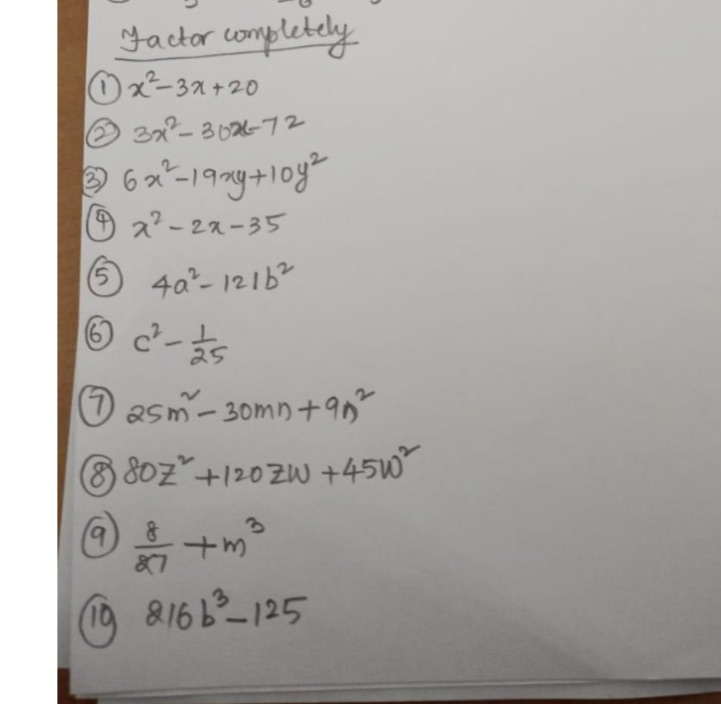 Factor completely
① x²-3x+20
② 3x²-30x-72
③ 6x²-19xy+10y²
④ x²-2x-35
⑤ 4a²-121b²
⑥ c²-1/25
⑦ 25m²-30mn+9n²
⑧ 80z²+120zw+45w²
⑨ 8/27+m³
⑩ 216b³-125